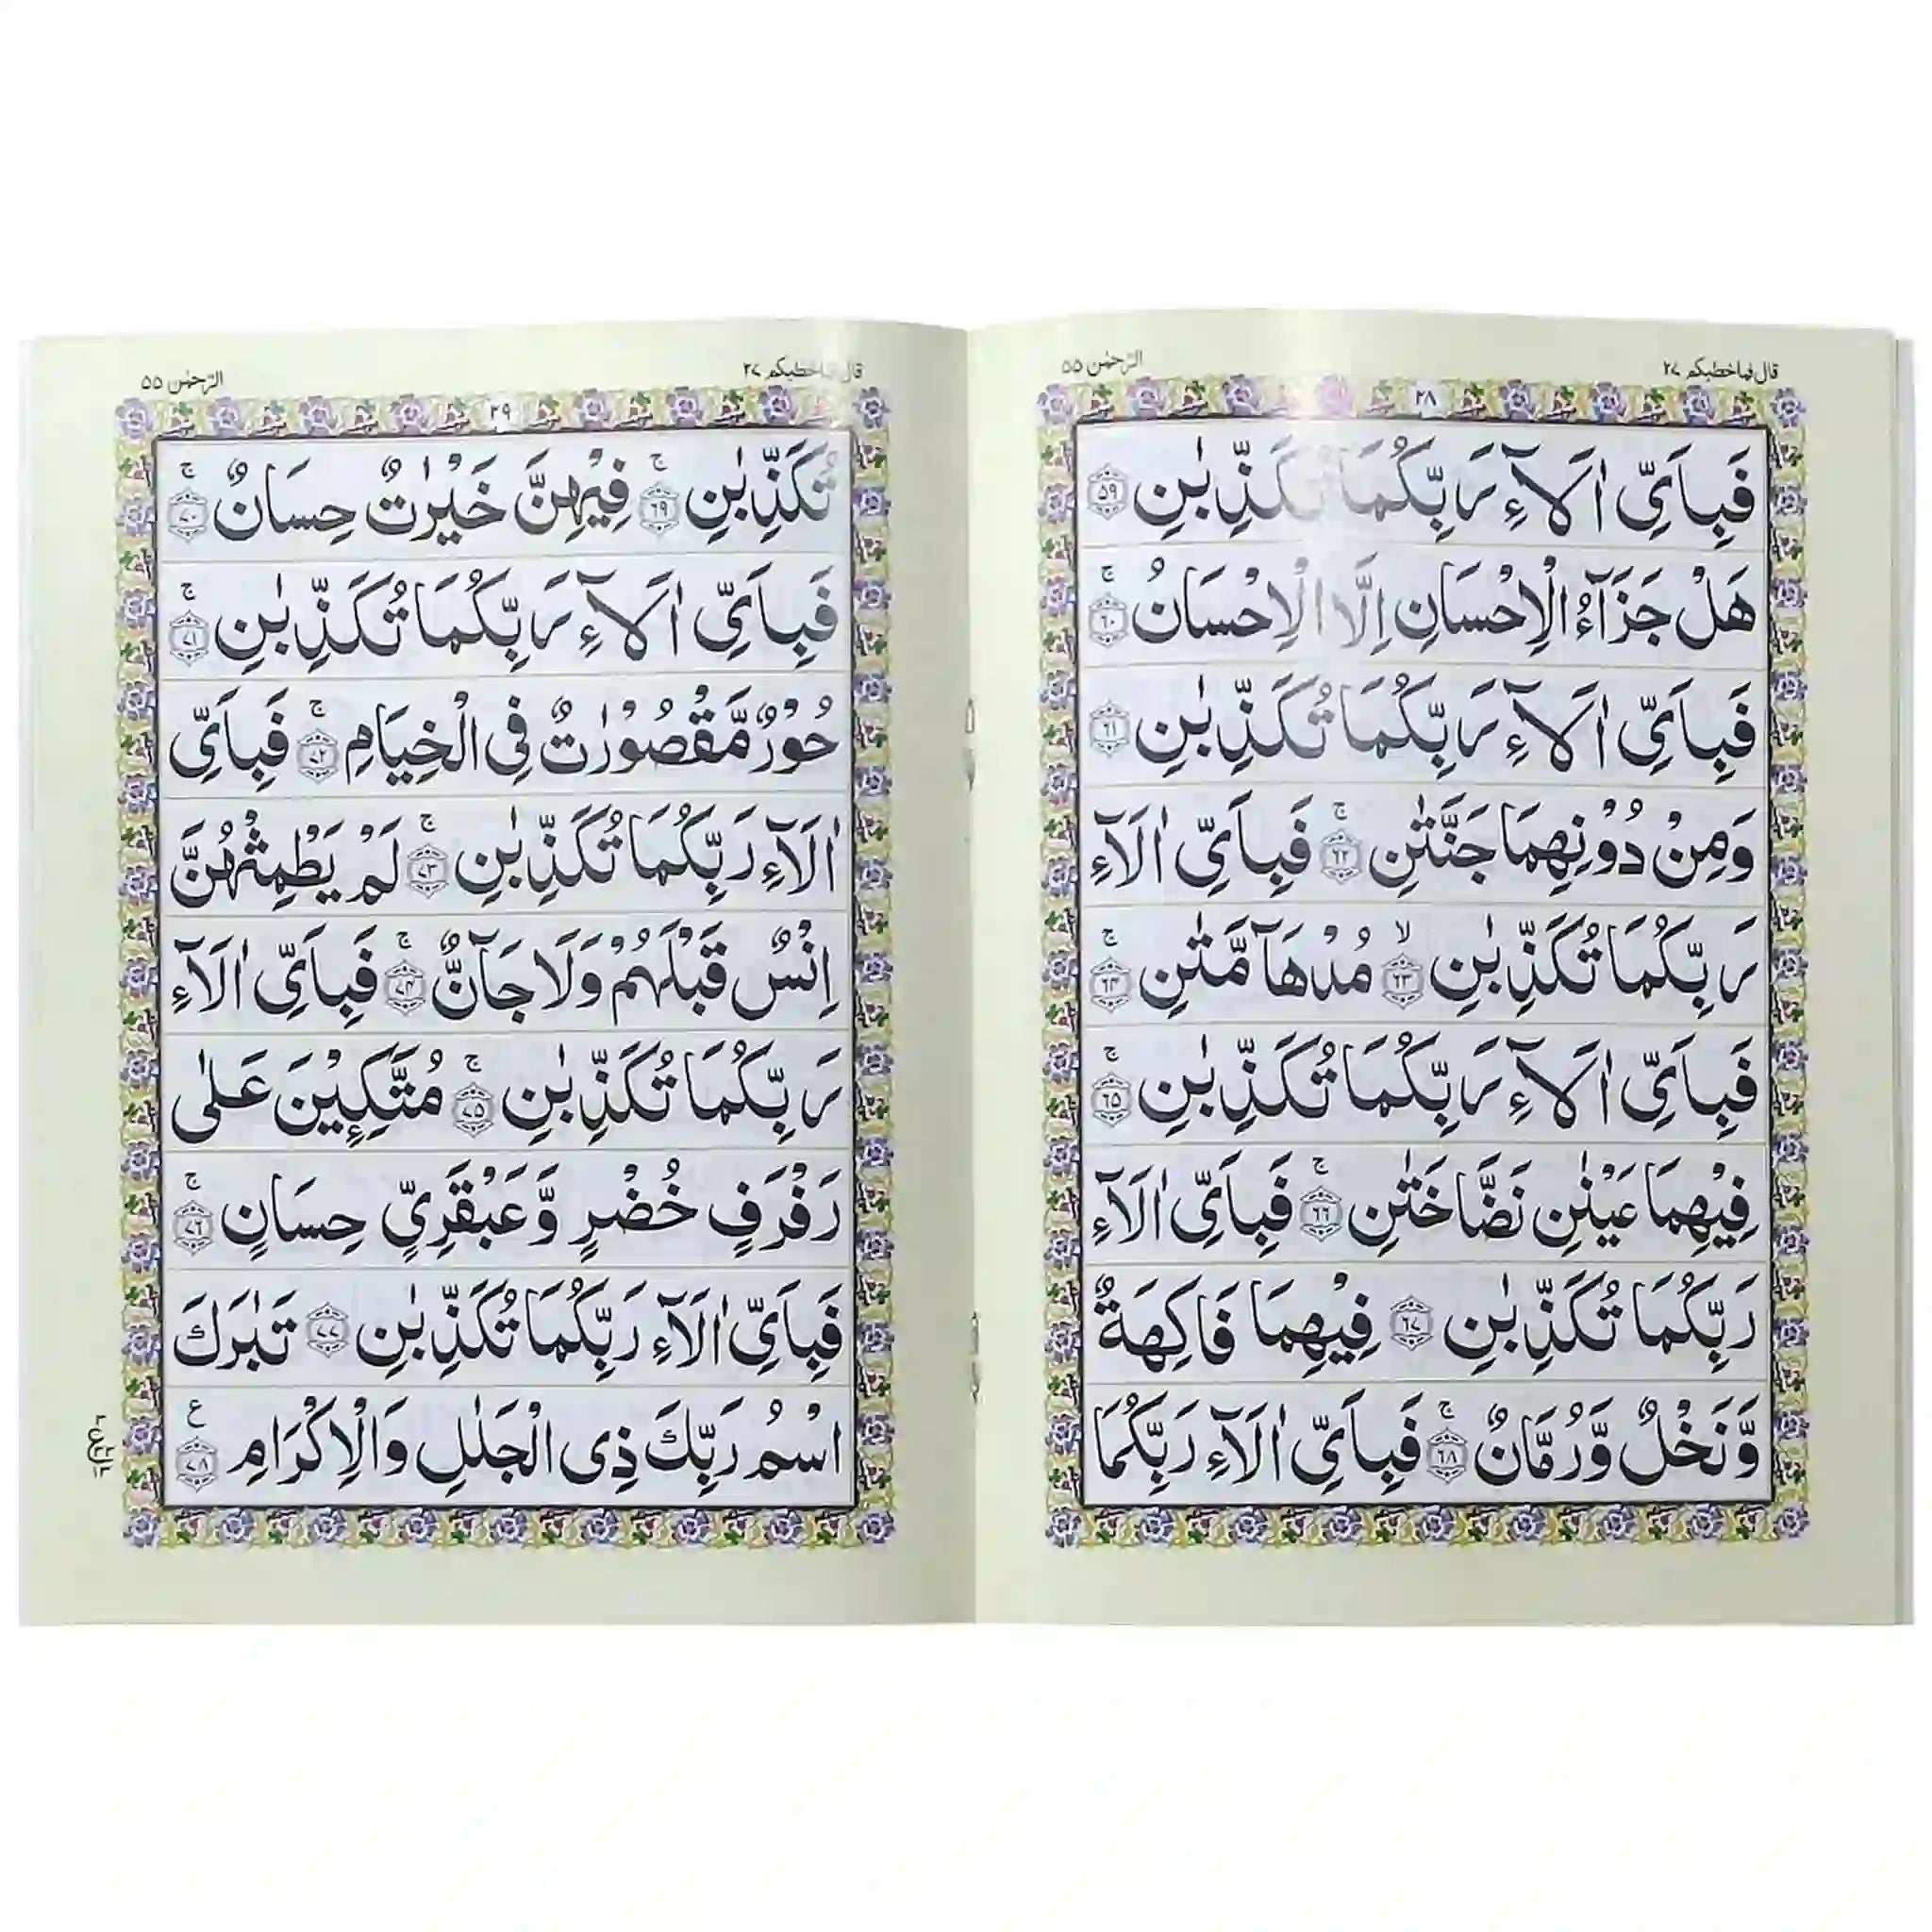 قال فماخطبكم ٢٧
الرّحمٰن ٥٥
٢٨
فَبِاَىِّ اٰلَآءِ رَبِّكُمَا تُكَذِّبٰنِ ﴿٥٩﴾
هَلْ جَزَآءُ الْاِحْسَانِ اِلَّا الْاِحْسَانُ ۚ﴿٦٠﴾
فَبِاَىِّ اٰلَآءِ رَبِّكُمَا تُكَذِّبٰنِ ﴿٦١﴾
وَمِنْ دُوْنِهِمَا جَنَّتٰنِ ۚ﴿٦٢﴾ فَبِاَىِّ اٰلَآءِ
رَبِّكُمَا تُكَذِّبٰنِ ۙ﴿٦٣﴾ مُدْهَآمَّتٰنِ ۚ﴿٦٤﴾
فَبِاَىِّ اٰلَآءِ رَبِّكُمَا تُكَذِّبٰنِ ۚ﴿٦٥﴾
فِيْهِمَا عَيْنٰنِ نَضَّاخَتٰنِ ۚ﴿٦٦﴾ فَبِاَىِّ اٰلَآءِ
رَبِّكُمَا تُكَذِّبٰنِ ﴿٦٧﴾ فِيْهِمَا فَاكِهَةٌ
وَّنَخْلٌ وَّرُمَّانٌ ۚ﴿٦٨﴾ فَبِاَىِّ اٰلَآءِ رَبِّكُمَا
قال فماخطبكم ٢٧
الرّحمٰن ٥٥
٢٩
تُكَذِّبٰنِ ۚ﴿٦٩﴾ فِيْهِنَّ خَيْرٰتٌ حِسَانٌ ۚ﴿٧٠﴾
فَبِاَىِّ اٰلَآءِ رَبِّكُمَا تُكَذِّبٰنِ ۚ﴿٧١﴾
حُوْرٌ مَّقْصُوْرٰتٌ فِى الْخِيَامِ ۚ﴿٧٢﴾ فَبِاَىِّ
اٰلَآءِ رَبِّكُمَا تُكَذِّبٰنِ ۚ﴿٧٣﴾ لَمْ يَطْمِثْهُنَّ
اِنْسٌ قَبْلَهُمْ وَلَا جَآنٌّ ۚ﴿٧٤﴾ فَبِاَىِّ اٰلَآءِ
رَبِّكُمَا تُكَذِّبٰنِ ۚ﴿٧٥﴾ مُتَّكِـِٕيْنَ عَلٰى
رَفْرَفٍ خُضْرٍ وَّعَبْقَرِىٍّ حِسَانٍ ۚ﴿٧٦﴾
فَبِاَىِّ اٰلَآءِ رَبِّكُمَا تُكَذِّبٰنِ ﴿٧٧﴾ تَبٰرَكَ
اسْمُ رَبِّكَ ذِى الْجَلٰلِ وَالْاِكْرَامِ ﴿٧٨﴾ ع